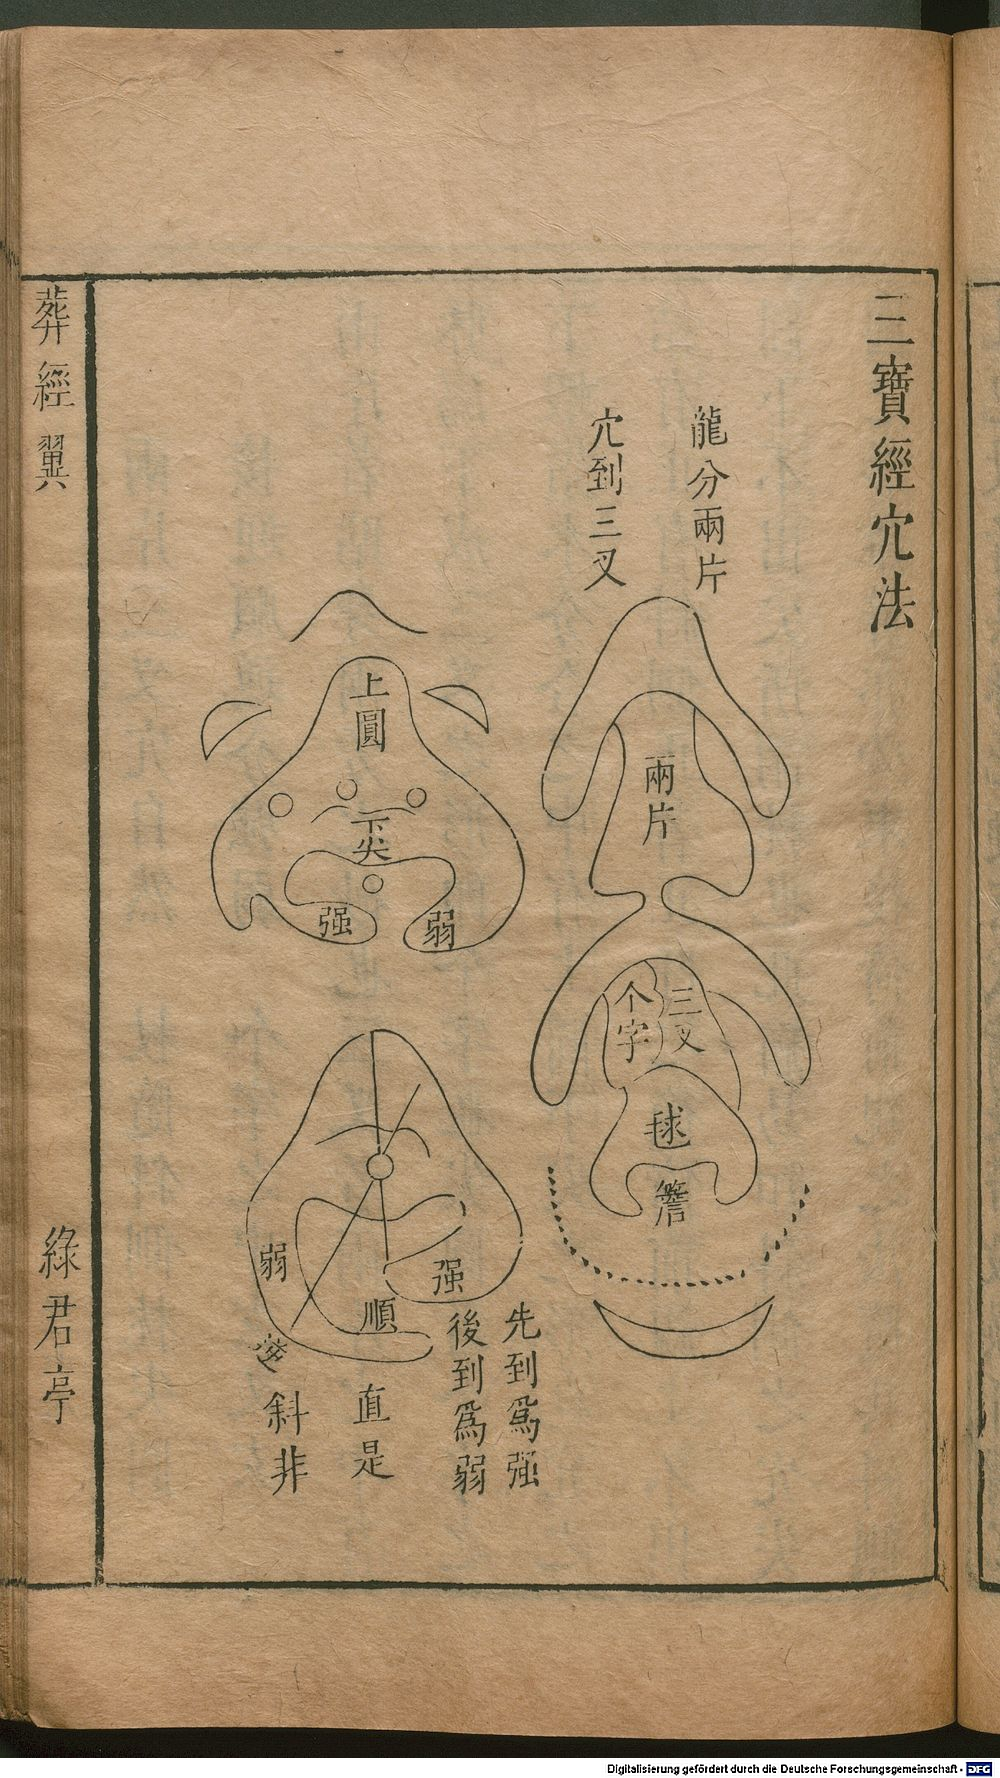 三寶經穴法
龍分兩片
穴到三叉
兩片
三叉
个字
毬
簷
上圓
下尖
强
弱
弱
强
順
逆
先到爲强
後到爲弱
直是
斜非
葬經翼
綠君亭
Digitalisierung gefördert durch die Deutsche Forschungsgemeinschaft - DFG